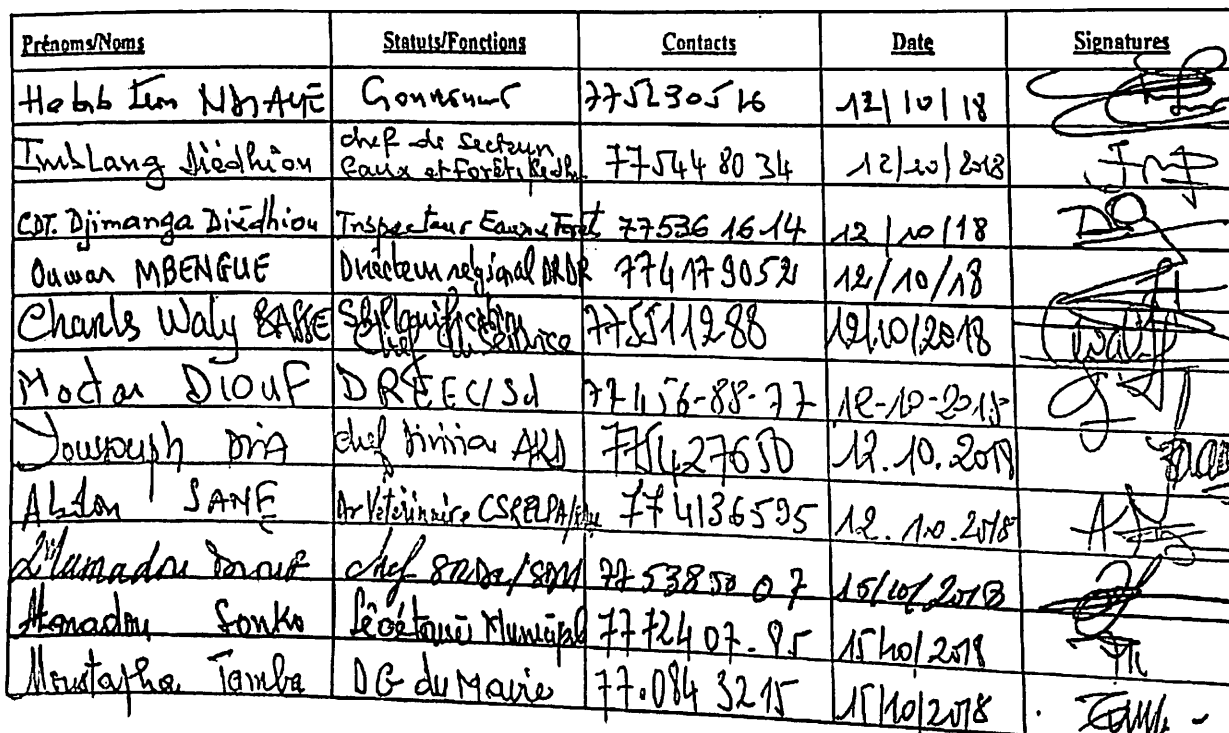 Prénoms/Noms Statuts/Fonctions Contacts Date Signatures
Habib NDIAYE Gouverneur 775230516 12/10/18
Imblang Diédhiou chef de Secteur Eaux et Forêts 77544 80 34 12/10/2018
CDT. Djimanga Diédhiou Inspecteur Eaux et Forêt 77536 16 14 12/10/18
Oumar MBENGUE Directeur régional DRDR 774179052 12/10/18
Charles Waly BASSE Planification Chef de Service 775511288 12/10/2018
Moctar DIOUF DREEC/Sd 77456-88-77 12-10-2018
Youssouph chef Division ARD 12.10.2018
SANE Dr Vétérinaire 774136595 12.10.2018
Mamadou Diouf chef 7753850 07 15/10/2018
Mamadou Sonko Secrétaire Municipal 7772407-95 15/10/2018
Moustapha Tamba DC du Maire 77.084 3215 15/10/2018